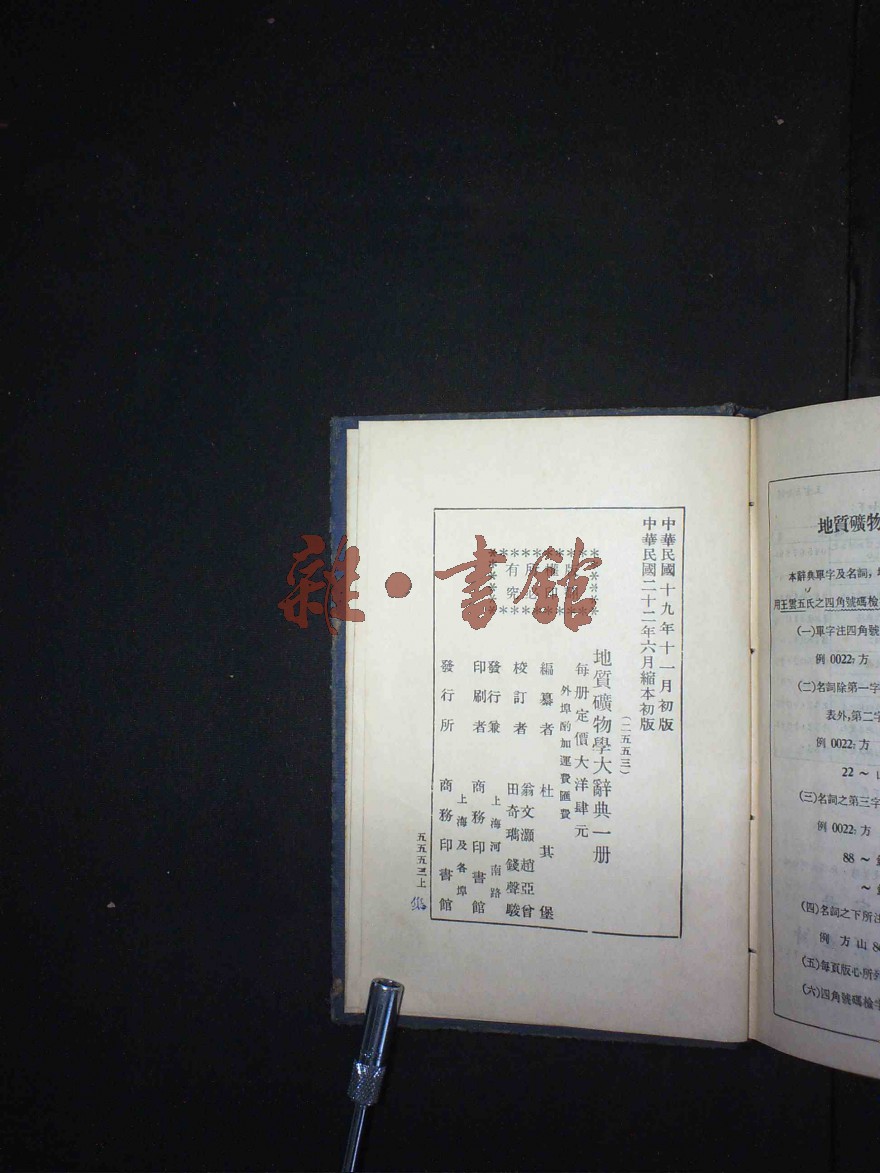 中華民國十九年十一月初版
中華民國二十二年六月縮本初版
(二五五三)
地質礦物學大辭典一册
每册定價大洋肆元
外埠酌加運費匯費
編纂者 杜其堡
校訂者 翁文灝 趙亞曾
田奇㻪 錢聲駿
發行兼印刷者 上海河南路
商務印書館
發行所 上海及各埠
商務印書館
版權所有
翻印必究
五五五三上
雜·書館
地質礦物
本辭典單字及名詞,
用王雲五氏之四角號碼檢
(一)單字注四角號
例 0022₇ 方
(二)名詞除第一字
表外,第二字
例 0022₇ 方
22～
(三)名詞之第三字
例 0022₇ 方
88～
～
(四)名詞之下所注
例 方山
(五)每頁版心所列
(六)四角號碼檢字